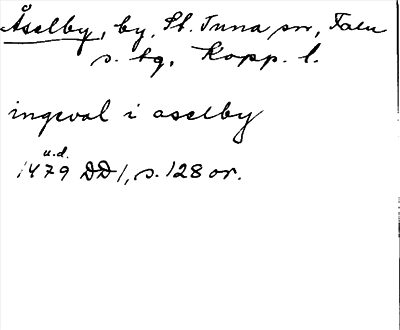 Åselby, by, St. Tuna sn, Falu
s. tg. Kopp. l.
ingeval i aselby
u.d.
1479 DD 1, s. 128 or.